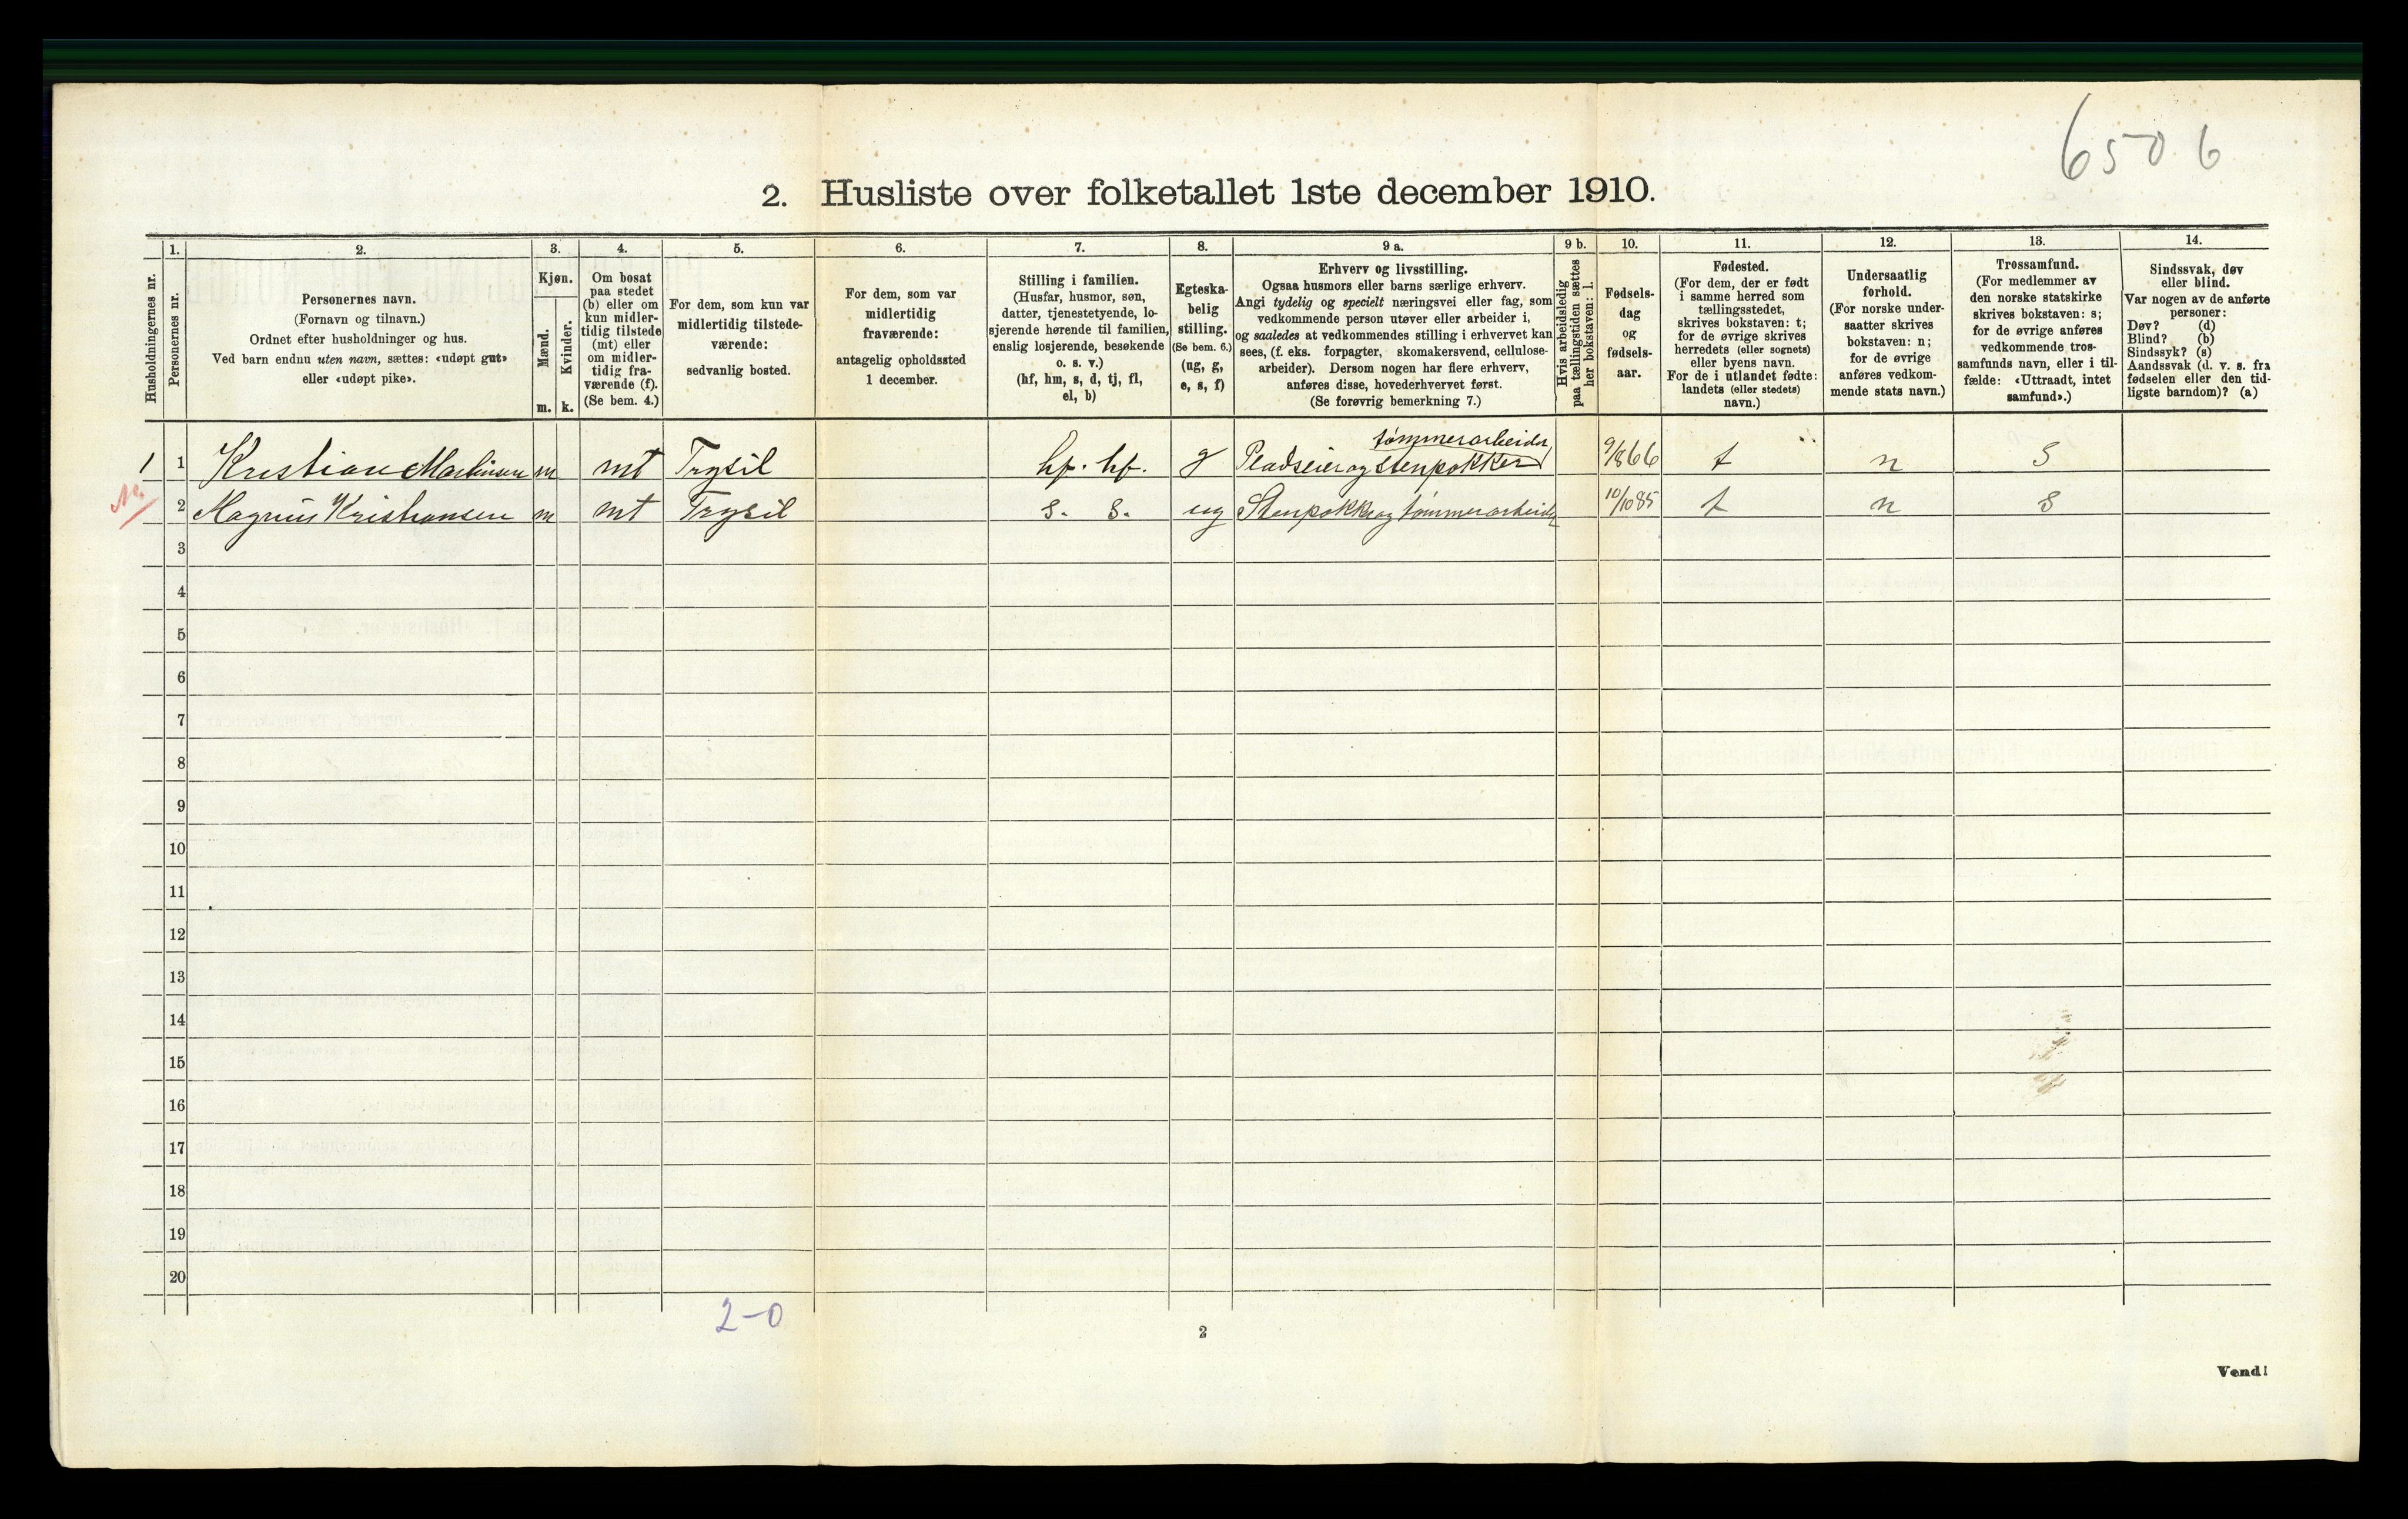 6506
2. Husliste over folketallet 1ste december 1910.
Husholdningernes nr.
1.
Personernes nr.
2.
Personernes navn.
(Fornavn og tilnavn.)
Ordnet efter husholdninger og hus.
Ved barn endnu uten navn, sættes: «udøpt gut»
eller «udøpt pike».
3.
Kjøn.
Mænd.
Kvinder.
m. k.
4.
Om bosat
paa stedet
(b) eller om
kun midler-
tidig tilstede
(mt) eller
om midler-
tidig fra-
værende (f).
(Se bem. 4.)
5.
For dem, som kun var
midlertidig tilstede-
værende:
sedvanlig bosted.
6.
For dem, som var
midlertidig
fraværende:
antagelig opholdssted
1 december.
7.
Stilling i familien.
(Husfar, husmor, søn,
datter, tjenestetyende, lo-
sjerende hørende til familien,
enslig losjerende, besøkende
o. s. v.)
(hf, hm, s, d, tj, fl,
el, b)
8.
Egteska-
belig
stilling.
(Se bem. 6.)
(ug, g,
e, s, f)
9 a.
Erhverv og livsstilling.
Ogsaa husmors eller barns særlige erhverv.
Angi tydelig og specielt næringsvei eller fag, som
vedkommende person utøver eller arbeider i,
og saaledes at vedkommendes stilling i erhvervet kan
sees, (f. eks. forpagter, skomakersvend, cellulose-
arbeider). Dersom nogen har flere erhverv,
anføres disse, hovederhvervet først.
(Se forøvrig bemerkning 7.)
9 b.
Hvis arbeidsledig
paa tællingstiden sættes
her bokstaven: l.
10.
Fødsels-
dag
og
fødsels-
aar.
11.
Fødested.
(For dem, der er født
i samme herred som
tællingsstedet,
skrives bokstaven: t;
for de øvrige skrives
herredets (eller sognets)
eller byens navn.
For de i utlandet fødte:
landets (eller stedets)
navn.)
12.
Undersaatlig
forhold.
(For norske under-
saatter skrives
bokstaven: n;
for de øvrige
anføres vedkom-
mende stats navn.)
13.
Trossamfund.
(For medlemmer av
den norske statskirke
skrives bokstaven: s;
for de øvrige anføres
vedkommende tros-
samfunds navn, eller i til-
fælde: «Uttraadt, intet
samfund».)
14.
Sindssvak, døv
eller blind.
Var nogen av de anførte
personer:
Døv? (d)
Blind? (b)
Sindssyk? (s)
Aandssvak (d. v. s. fra
fødselen eller den tid-
ligste barndom)? (a)
tømmerarbeider
1 1 Kristian Martinsen m mt Trysil hf. hf. g Pladseier og stenpokker 9/8 66 t n S
2 Magnus Kristiansen m mt Trysil s. s. ug Stenpokker og tømmerarbeider 10/10 85 t n S
3
4
5
6
7
8
9
10
11
12
13
14
15
16
17
18
19
20
2-0
2
Vend!